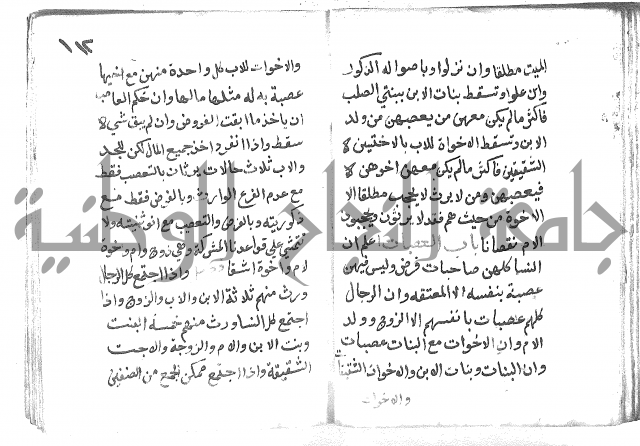 الميت مطلقا وان نزلوا وباصوله الذكور
وان علوا وتسقط بنات الابن ببنتي الصلب
فاكثر مالم يكن معهن من يعصبهن من ولد
الابن وتسقط الاخوات للاب بالاختين لا
الشقيقتين فاكثر مالم يكن معهن اخوهن لا
فيعصبهن ومن لا يرث لا يحجب مطلقا الا
الاخوة من حيث هم فقد لا يرثون ويحجبون
الام نقصانا باب العصبات اعلم ان
النسا كلهن صاحبات فرض وليس فيهن
عصبة بنفسه الا المعتقه وان الرجال
كلهم عصبات بانفسهم الا الزوج وولد
الام وان الاخوات مع البنات عصبات
وان البنات وبنات الابن والاخوات الشقيقات
والاخوات
١١٢
والاخوات للاب كل واحدة منهن مع اخيها
عصبة به له مثلاها مالها وان حكم العاصب
ان ياخذ ما ابقت الفروض وان لم يبق شي لا
سقط واذا انفرد اخذ جميع المال لكن للجد
والاب ثلاث حالات يرثان بالتعصيب فقط
مع عدم الفرع الوارث وبالفرض فقط مع
ذكوريته وبالفرض والتعصيب مع انوثيته ولا
تمشي على قواعدنا المشركة وهي زوج وام واخوة
لام واخوة اشقا واذا اجتمع كل الرجال
ورث منهم ثلاثة الابن والاب والزوج واذا
اجتمع كل النسا ورث منهم خمسة البنت
وبنت الابن والام والزوجة والاخت
الشقيقة واذا اجتمع ممكن الجمع من الصنفين
جامعة النجاح الوطنية